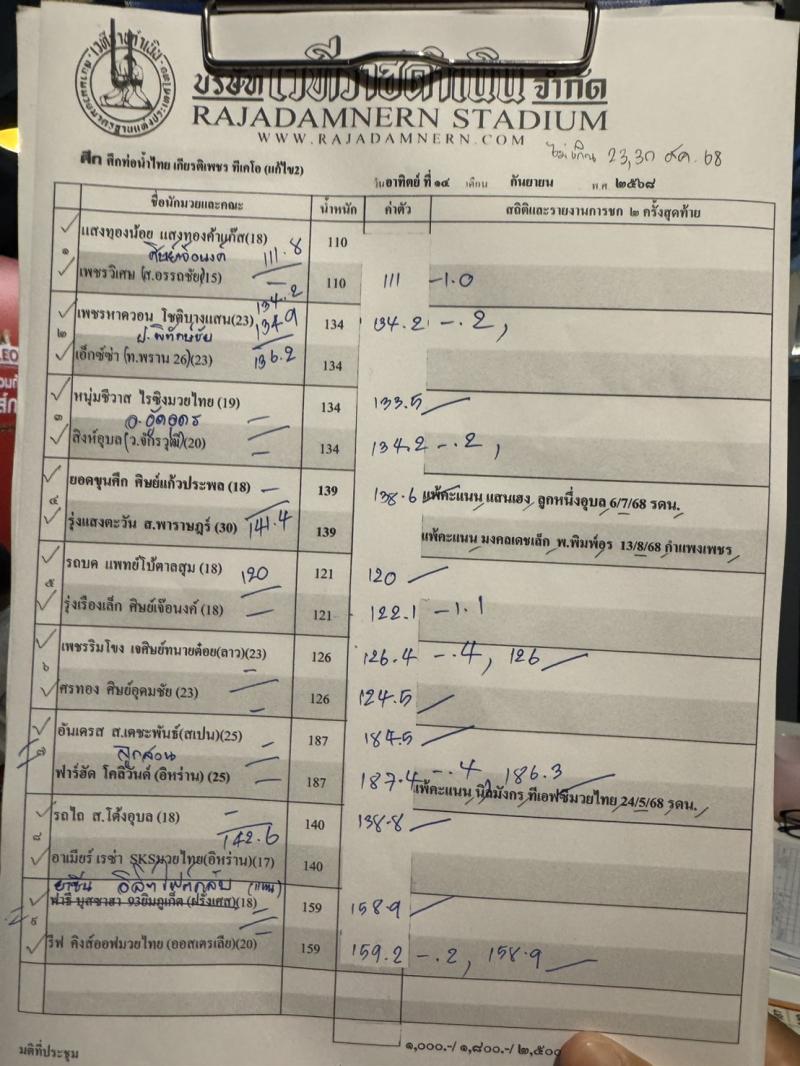 บริษัท เวทีราชดำเนิน จำกัด
RAJADAMNERN STADIUM
WWW.RAJADAMNERN.COM
ศึก ศึกท่อน้ำไทย เกียรติเพชร ทีเคโอ (แก้ไข2)
23,30 ส.ค. 68
วันอาทิตย์ ที่ ๑๔ เดือน กันยายน พ.ศ. ๒๕๖๘
ชื่อนักมวยและคณะ น้ำหนัก ค่าตัว สถิติและรายงานการชก ๒ ครั้งสุดท้าย
๑ แสงทองน้อย แสงทองค้าแก๊ส(18) 110
ศิษย์เจ๊อนงค์ 111.8
เพชรวิเศษ (ส.อรรถชัย)(15) 110 111 -1.0
134.2
๒ เพชรหาดวอน โชติบางแสน(23) 134.9 134 134.2 -.2,
ป.พิทักษ์ชัย
เอ็กซ์ซ่า (ท.พราน 26)(23) 136.2 134
๓ หนุ่มชีวาส ไรซิ่งมวยไทย (19) 134 133.5
อ.อัดอุดร
สิงห์อุบล(ว.จักรวุฒิ)(20) 134 134.2 -.2,
๔ ยอดขุนศึก ศิษย์แก้วประพล (18) 139 138.6 แพ้คะแนน แสนเฮง ลูกหนึ่งอุบล 6/7/68 รดน.
รุ่งแสงตะวัน ส.พาราษฎร์ (30) 141.4 139 แพ้คะแนน มงคลเดชเล็ก พ.พิมพ์อร 13/8/68 กำแพงเพชร
๕ รถบด แพทย์โป๊ตาลสุม (18) 120 121 120
รุ่งเรืองเล็ก ศิษย์เจ๊อนงค์ (18) 121 122.1 -1.1
๖ เพชรริมโขง เจศิษย์ทนายต๋อย(ลาว)(23) 126 126.4 -.4, 126
ศรทอง ศิษย์อุดมชัย (23) 126 124.5
๗ อันเดรส ส.เดชะพันธ์(สเปน)(25) 187 184.5
ลูกสวน
ฟาร์ฮัด โคลิวันด์ (อิหร่าน) (25) 187 187.4 -.4 186.3 แพ้คะแนน นิลมังกร ทีเอฟซีมวยไทย 24/5/68 รดน.
๘ รถไถ ส.โต้งอุบล (18) 140 138.8
142.6
อาเมียร์ เรซ่า SKSมวยไทย(อิหร่าน)(17) 140
ยาซีน
๙ ฟารี บุสซาฮา 93ยิมภูเก็ต (ฝรั่งเศส)(18) 159 158.9
รีฟ คิงส์ออฟมวยไทย (ออสเตรเลีย)(20) 159 159.2 -.2, 158.9
มติที่ประชุม ๑,๐๐๐.-/ ๑,๘๐๐.-/ ๒,๕๐๐